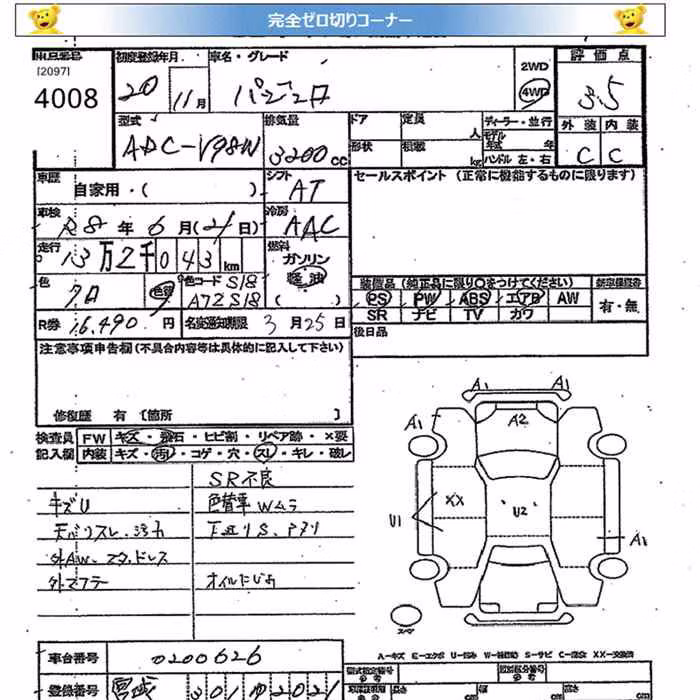 完全ゼロ切りコーナー
[2097]
4008
初度登録年月
20
11月
車名・グレード
パジェロ
2WD
4WD
評価点
3.5
外装 内装
C C
型式
ADC-V98W
排気量
3200cc
ドア 定員 人
形状 積載 kg
ディーラー・並行
モデル年式 年
ハンドル 左・右
車歴
自家用・( )
シフト
AT
セールスポイント (正常に機能するものに限ります)
車検
R8年6月(21日)
冷房
AAC
走行
13万2千043km
燃料
ガソリン
軽油
( )
色
クロ
色替
色コード S18
A72S18
装備品 (純正品に限り○をつけてください)
PS PW ABS エアB AW
SR ナビ TV カワ
有・無
R券 16,490円
名変通知期限 3月25日
後日品
注意事項申告欄(不具合内容等は具体的に記入して下さい)
修復歴 有 [箇所 ]
検査員
記入欄
FW キズ・飛石・ヒビ割・リペア跡・×要
内装 キズ・汚れ・コゲ・穴・スレ・キレ・破レ
SR不良
キズU
色替車 Wムラ
天バリスレ、汚れ
下廻りS、アオリ
外AW、マッドレス
外マフラー
オイルにじみ
A1 A1
A1
A2
XX
U1
U2
A1
スペア
A-キズ E-エクボ U-凹み W-補修跡 S-サビ C-腐食 XX-交換済
車台番号
0200626
登録番号
宮城 301 ゆ 2021
型式指定番号
類別区分番号
長さ cm
幅 cm
高さ cm